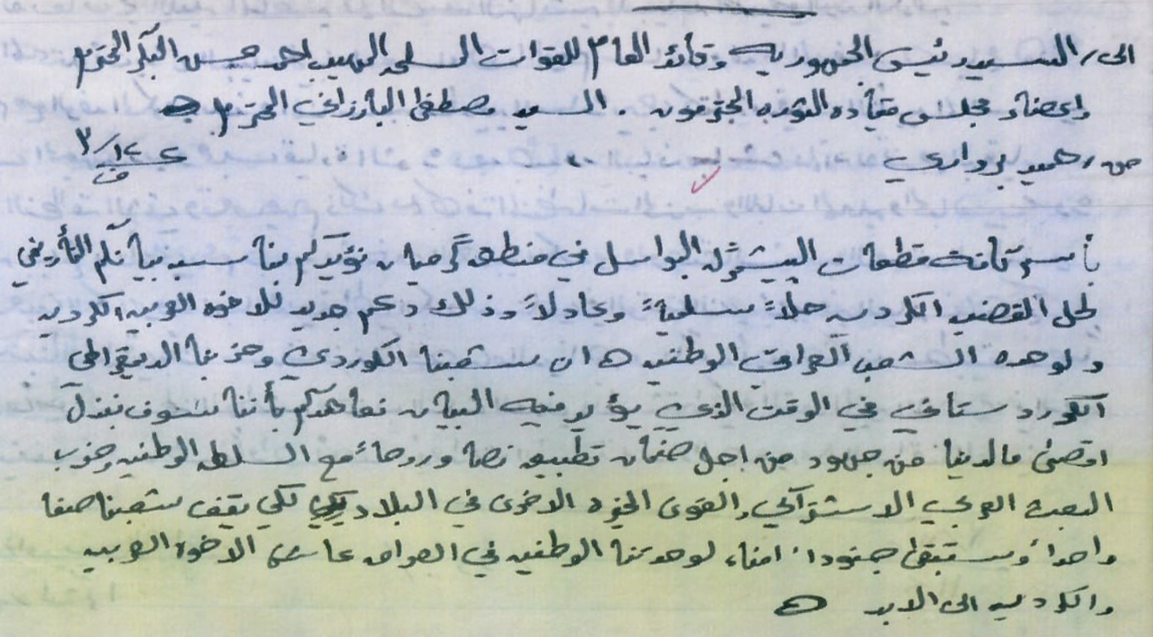 الى/ السيد رئيس الجمهوريه وقائد العام للقوات المسلحه المهيب احمد حسن البكر المحترم
واعضاء مجلس قيادة الثوره المحترمون . السيد مصطفى البارزاني المحترم
من/ حميد برواري ٣/١٢
بأسم قطعات البيشمرگه البواسل في منطقة گرميان نؤيدكم بيانكم التأريخي
لحل القضيه الكرديه حلاً سلمياً وعادلاً وذلك دعم جديد للاخوه العربيه الكرديه
ولوحده الشعب العراقي الوطنيه ان شعبنا الكوردي وحزبنا الديمقراطي
الكوردستاني في الوقت الذي يؤيد فيه البيان نعاهدكم بأننا سوف نبذل
اقصى مالدينا من جهود من اجل ضمان تطبيقه نصا وروحاً مع السلطه الوطنيه وحزب
البعث العربي الاشتراكي والقوى الخيره الاخرى في البلاد لكي يقف شعبنا صفا
واحداً وستبقى جنوداً امناء لوحدتنا الوطنيه في العراق عاشت الاخوة العربيه
والكرديه الى الابد